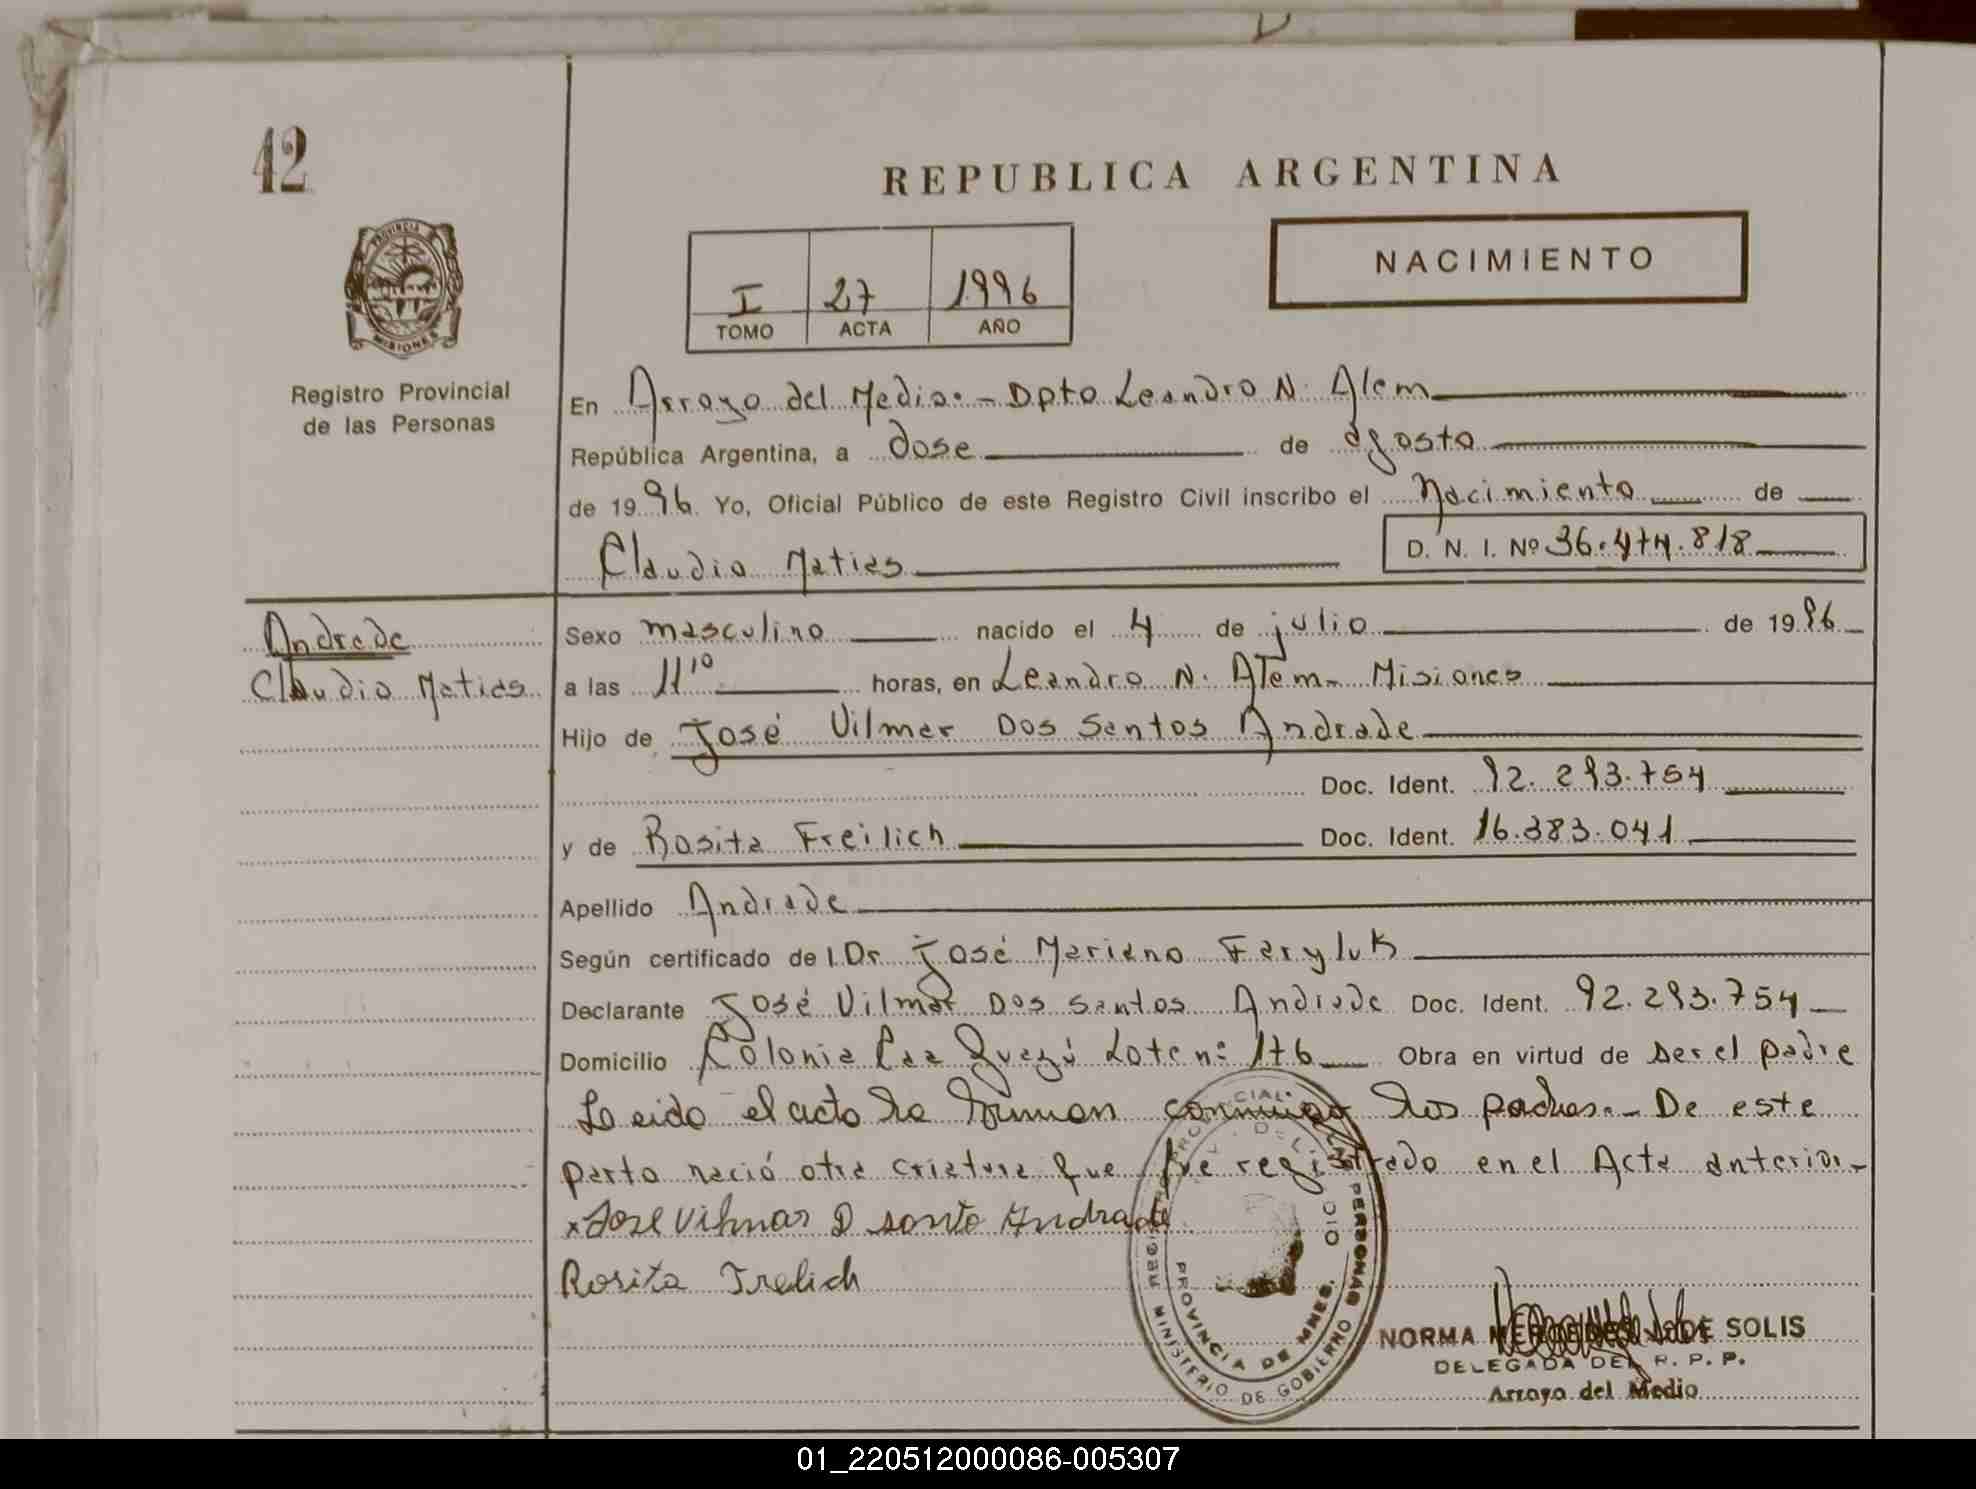 42
REPUBLICA ARGENTINA
NACIMIENTO
I 27 1996
TOMO ACTA AÑO
PROVINCIA
MISIONES
Registro Provincial
de las Personas
En Arroyo del Medio.- Dpto Leandro N. Alem
República Argentina, a dose de agosto
de 1996 Yo, Oficial Público de este Registro Civil inscribo el Nacimiento de
Claudio Matias D. N. I. Nº 36.474.818
Andrade
Claudio Matias
Sexo masculino nacido el 4 de julio de 1996
a las 11'10 horas, en Leandro N. Alem- Misiones
Hijo de José Vilmar Dos Santos Andrade
Doc. Ident. 92.293.754
y de Rosita Freilich Doc. Ident. 16.383.041
Apellido Andrade
Según certificado de l Dr José Mariano Faryluk
Declarante José Vilmar Dos Santos Andrade Doc. Ident. 92.293.754
Domicilio Colonia Caa Guazú Lote nº 176 Obra en virtud de ser el padre
Leido el acto lo firman conmigo los padres.- De este
parto nació otra criatura que fue registrado en el Acta anterior.-
x Jose Vilmar D santo Andrade
Rosita Frelich
REGISTRO PROVINCIAL PERSONAS
MINISTERIO DE GOBIERNO
PROVINCIA DE MNES.
NORMA SOLIS
DELEGADA DEL R. P. P.
Arroyo del Medio
01_220512000086-005307